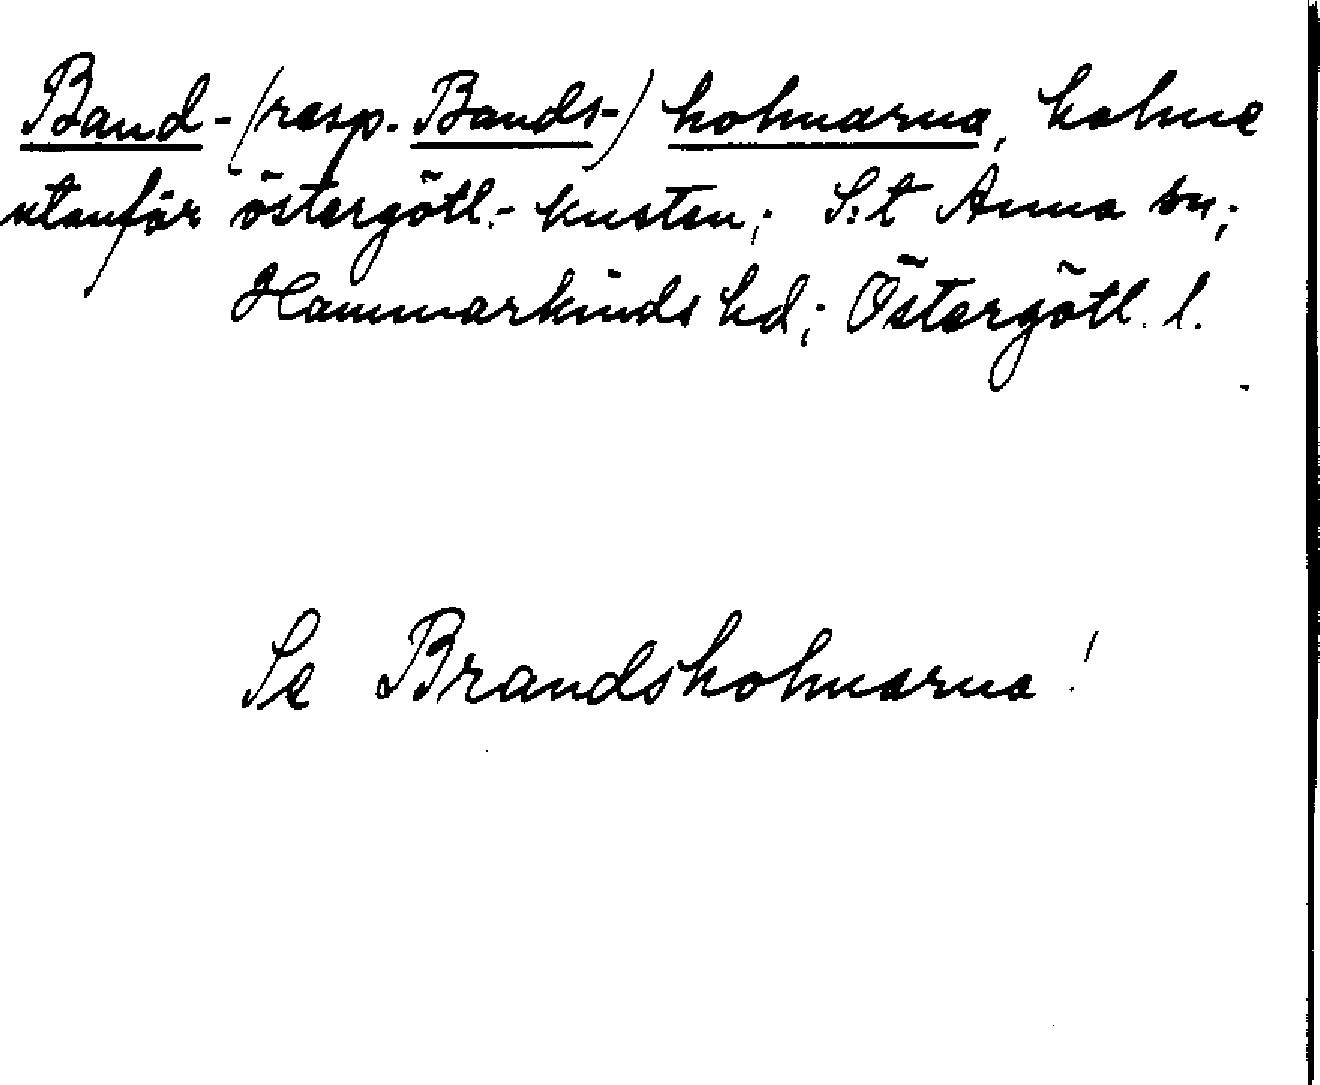 Band-(resp. Bands-) holmarna, holme
utanför östergötl.-kusten; S:t Anna sn;
Hammarkinds hd; Östergötl. l.
Se Brandsholmarna!